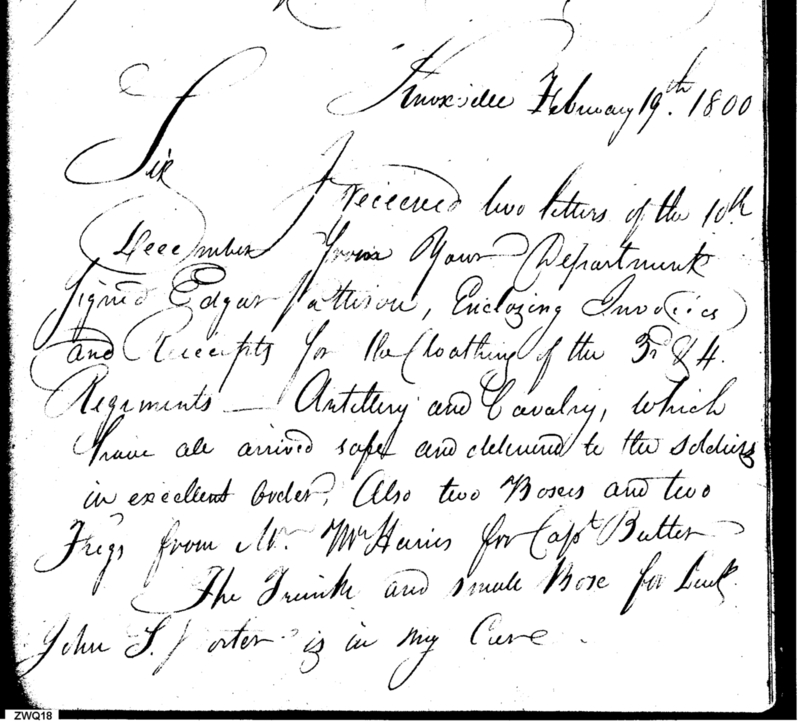 Knoxville February 19th. 1800
Sir
I received two letters of the 10th
December from Your Department
Signed Edgar Patterson, Enclozing Invoices
and Receipts for the Cloathing of the 3d & 4.
Regiments — Artillery and Cavalry, which
have all arrived safe and delivered to the Soldiers
in excellent order, Also two Boxes and two
Kegs from Mr. for Capt Butler
The Trunk and small Boxe for Lieut.
John S. Porter is in my Care.
ZWQ18